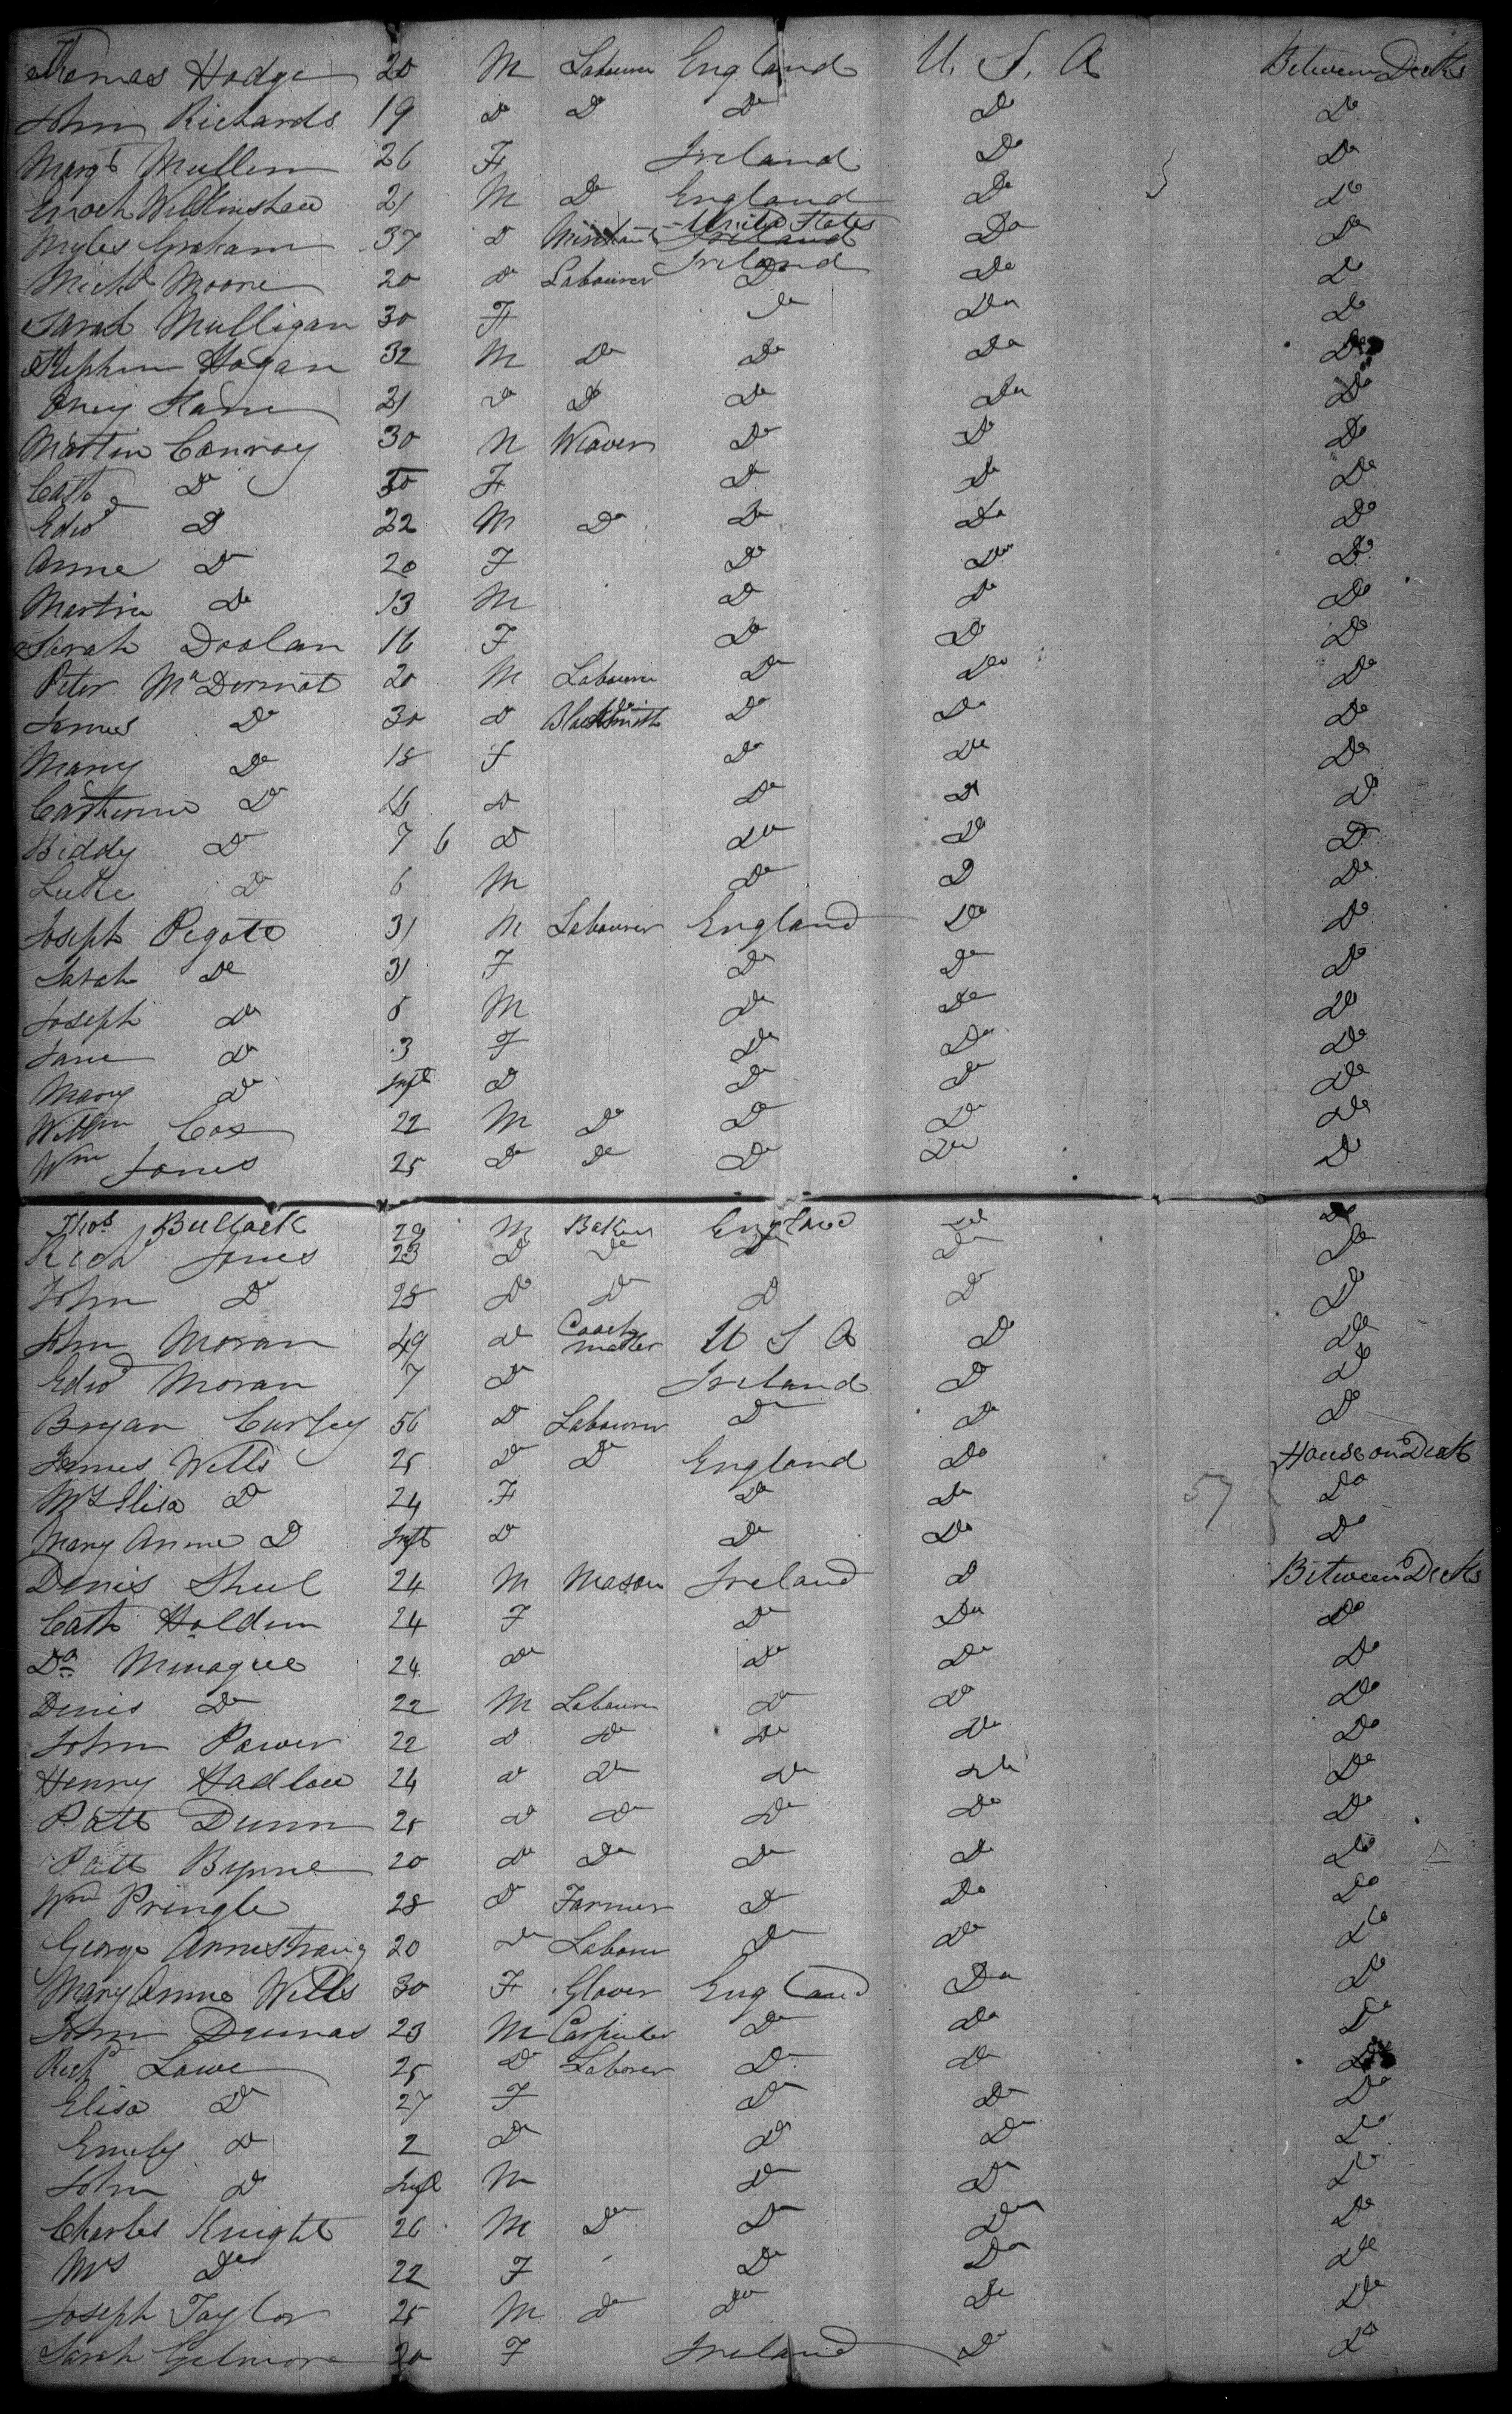 Thomas Hodge 20 M Labourer England U. S. A Between Decks
John Richards 19 Do Do Do Do Do
Margt Mullen 26 F Ireland Do Do
Enoch Wilkinshaw 21 M Do England Do Do
Myles Graham 37 Do United States Ireland Do Do
Michl Moore 20 Do Labourer Ireland Do Do Do
Sarah Mulligan 30 F Do Do Do
Stephen Hogan 32 M Do Do Do Do
21 Do Do Do Do Do
Martin Conroy 30 M Weaver Do Do Do
Cath Do 30 F Do Do Do
Edwd Do 22 M Do Do Do Do
Anne Do 20 F Do Do Do
Martin Do 13 M Do Do Do
Sarah Doolan 16 F Do Do Do
Peter McDermot 20 M Labourer Do Do Do
James Do 30 Do Blacksmith Do Do Do
Mary Do 18 F Do Do Do
Catherine Do 16 Do Do Do Do
Biddy Do 7 6 Do Do Do Do
Luke Do 6 M Do Do Do
Joseph Pegott 31 M Labourer England Do Do
Sarah Do 31 F Do Do Do
Joseph Do 8 M Do Do Do
Jane Do 3 F Do Do Do
Mary Do Inft Do Do Do Do
Willm Cox 22 M Do Do Do Do
Wm Jones 25 Do Do Do Do Do
Thos Bullock 29 M Baker England Do Do
Richd Jones 23 Do Do Do Do Do
John Do 28 Do Do Do Do Do
John Moran 49 Do Coach maker U S A Do Do
Edwd Moran 7 Do Ireland Do Do
Bryan Curley 56 Do Labourer Do Do Do
James Wills 25 Do Do England Do House on Deck
Mrs Elisa Do 24 F Do Do 57 Do
Mary Anne Do Inft Do Do Do Do
Denis Sheel 24 M Mason Ireland Do Between Decks
Cath Holden 24 F Do Do Do
Do Minague 24 Do Do Do Do
Denis Do 22 M Labourer Do Do Do
John Power 22 Do Do Do Do Do
Henry Hadlow 24 Do Do Do Do Do
Patt Dunn 25 Do Do Do Do Do
Patt Byrne 20 Do Do Do Do Do
Wm Pringle 28 Do Farmer Do Do Do
George Armstrong 20 Do Labour Do Do Do
Mary Anne Wills 30 F Glover England Do Do
John Dumas 23 M Carpenter Do Do Do
Richd Lowe 25 Do Laborer Do Do Do
Elisa Do 27 F Do Do Do
Emily Do 2 Do Do Do Do
John Do Inft M Do Do Do
Charles Knight 26 M Do Do Do Do
Mrs Do 22 F Do Do Do
Joseph Taylor 25 M Do Do Do Do
Sarah Gilmore 20 F Ireland Do Do